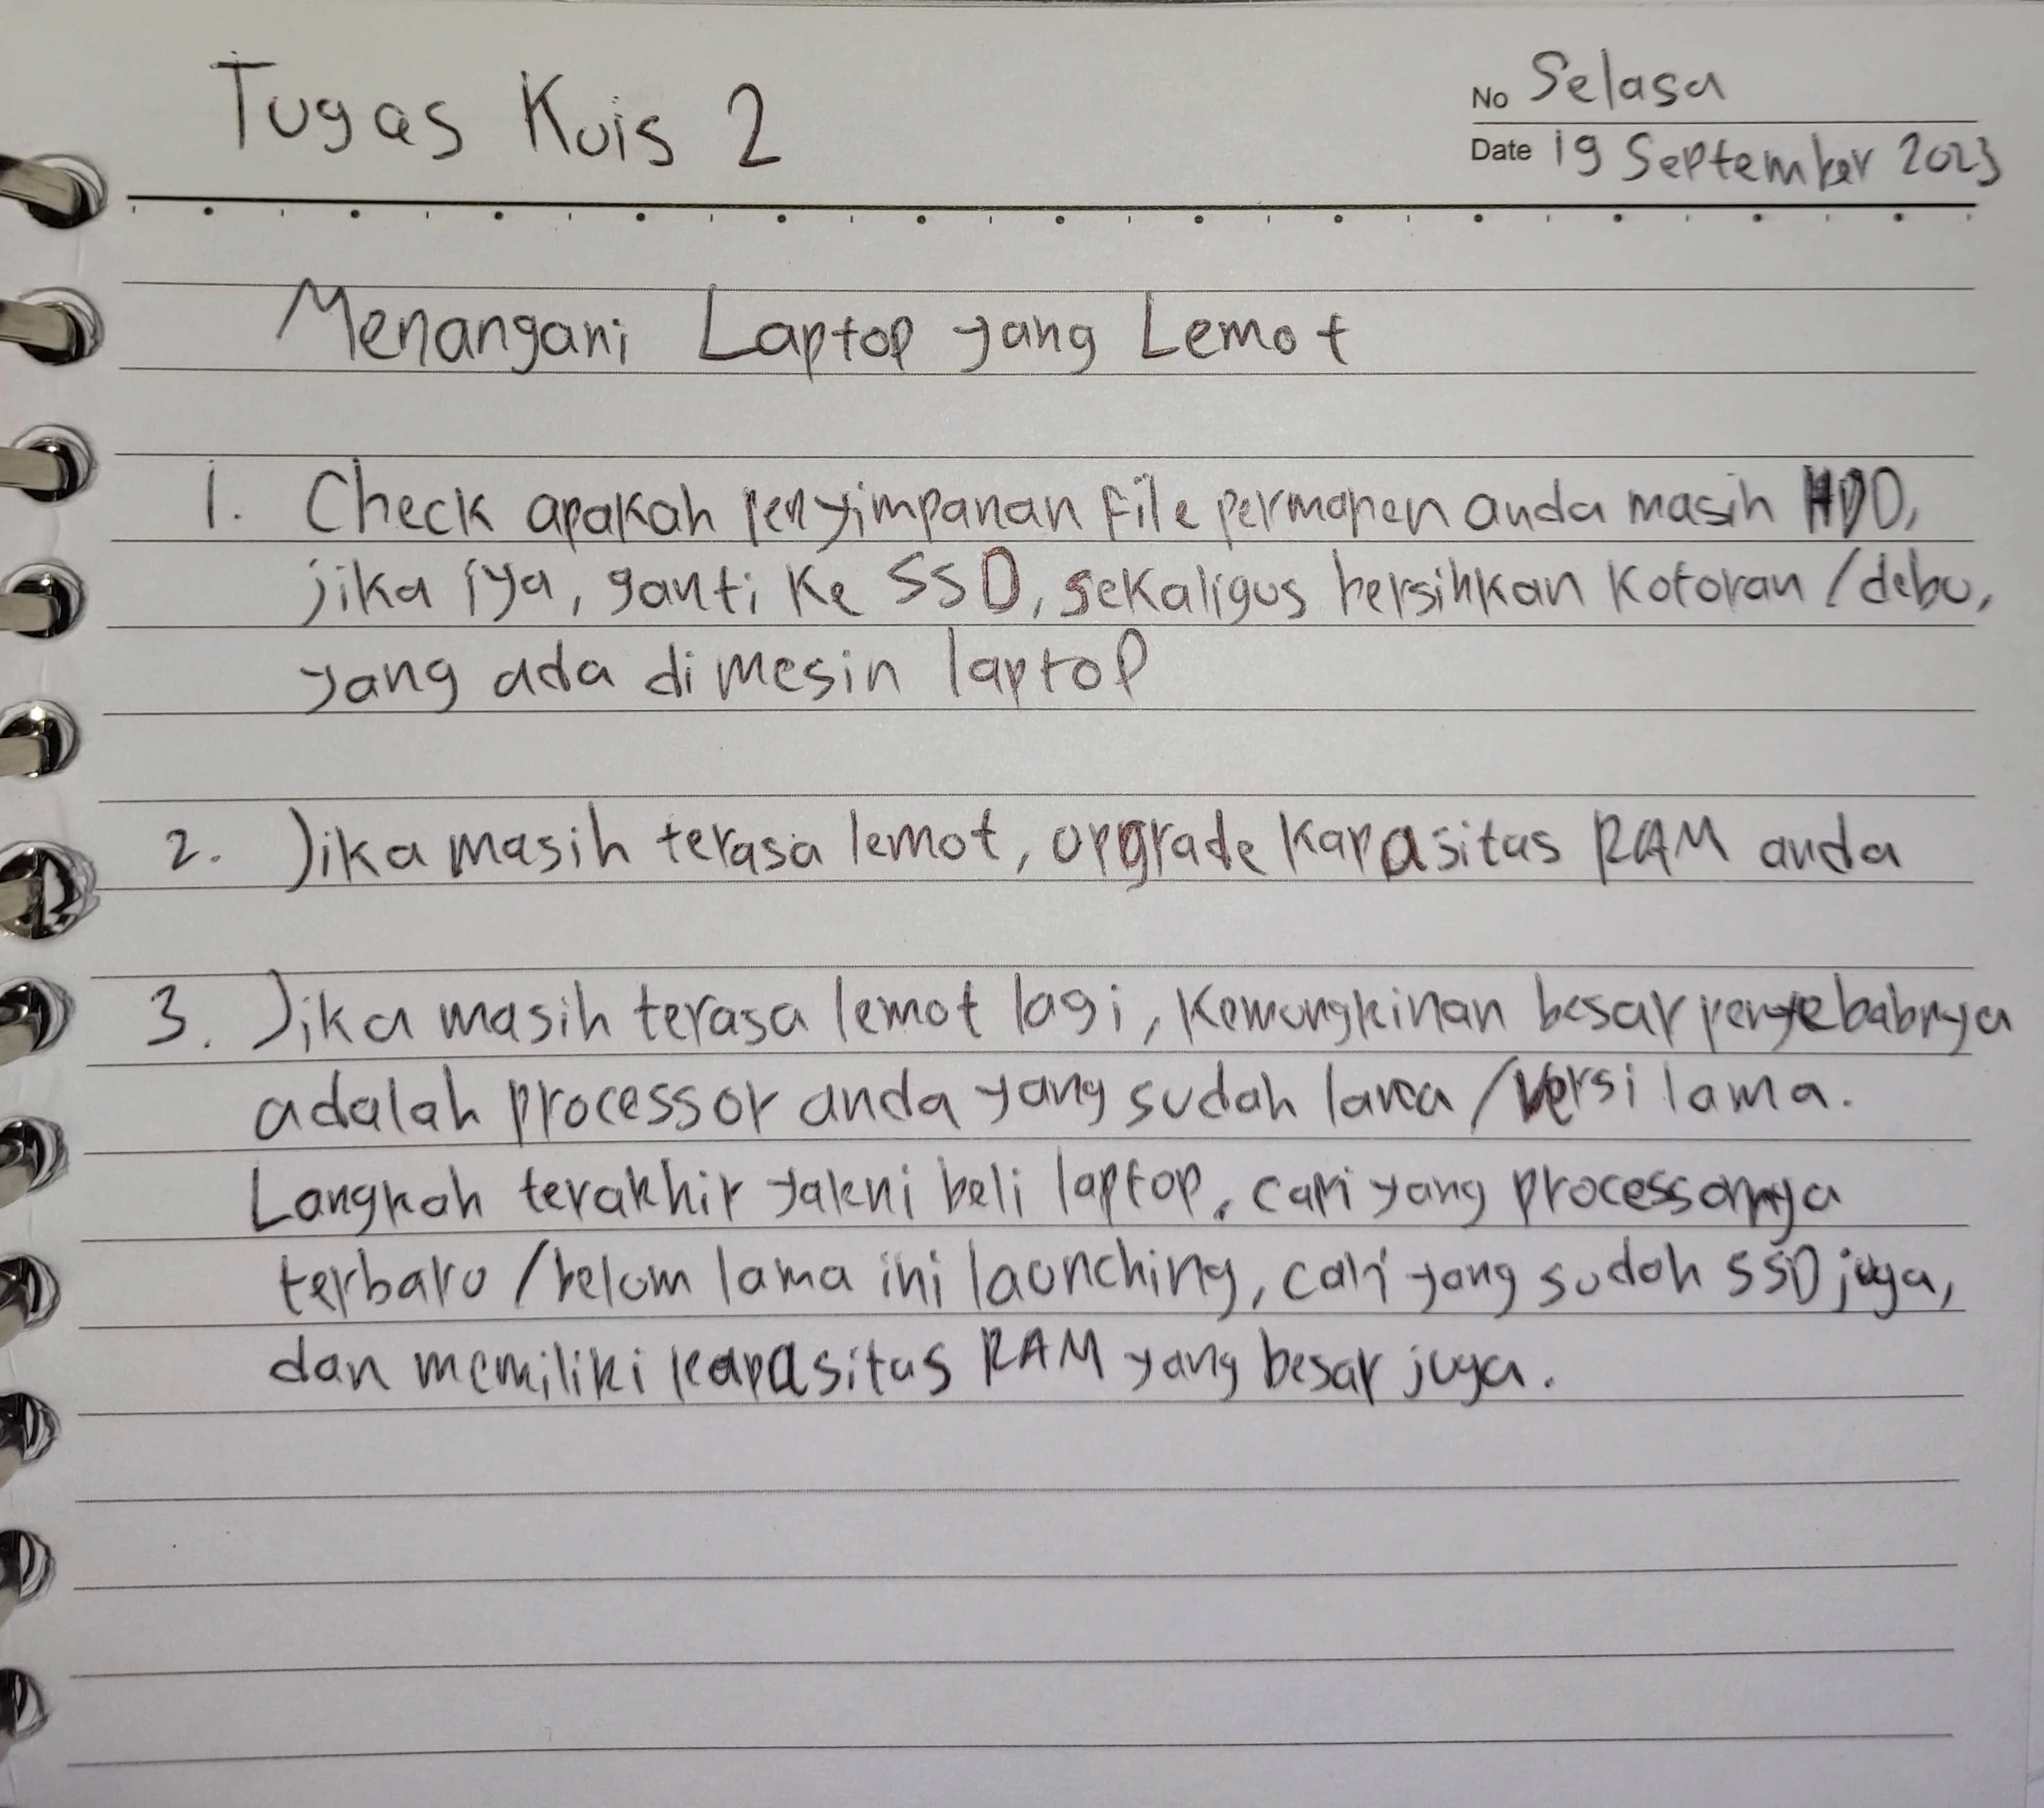 Tugas Kuis 2
No Selasa
Date 19 September 2023
Menangani Laptop yang Lemot
1. Check apakah penyimpanan file permanen anda masih HDD,
jika iya, ganti ke SSD, sekaligus bersihkan kotoran / debu,
yang ada di mesin laptop
2. Jika masih terasa lemot, upgrade kapasitas RAM anda
3. Jika masih terasa lemot lagi, kemungkinan besar penyebabnya
adalah processor anda yang sudah lama / versi lama.
Langkah terakhir yakni beli laptop, cari yang processornya
terbaru / belum lama ini launching, cari yang sudah SSD juga,
dan memiliki kapasitas RAM yang besar juga.